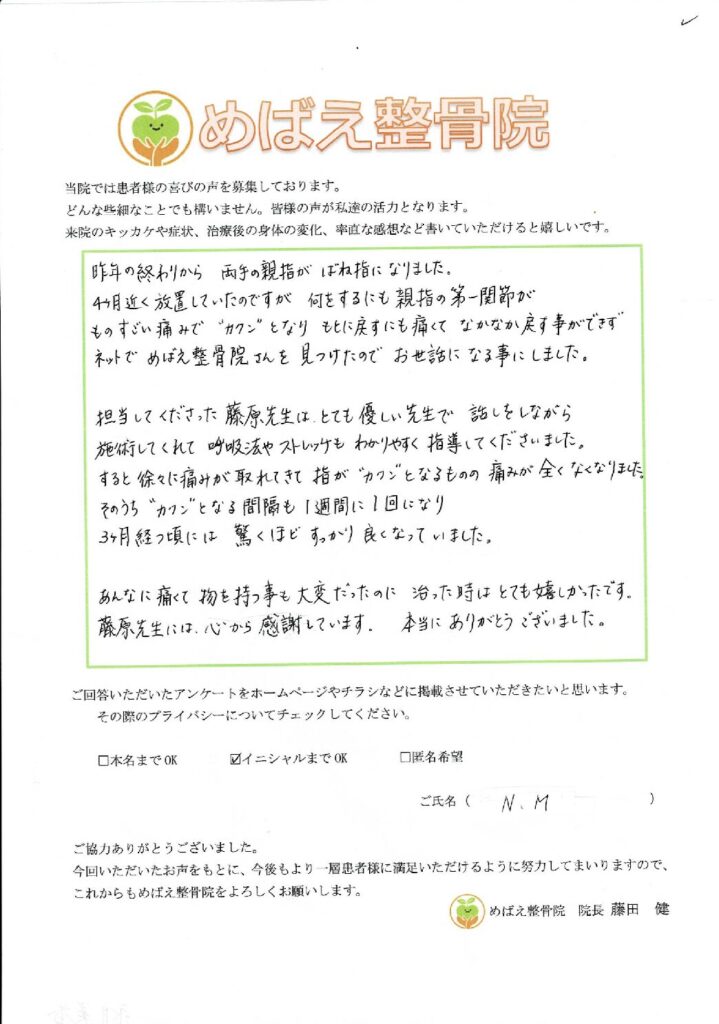 めばえ整骨院
当院では患者様の喜びの声を募集しております。
どんな些細なことでも構いません。皆様の声が私達の活力となります。
来院のキッカケや症状、治療後の身体の変化、率直な感想など書いていただけると嬉しいです。
昨年の終わりから 両手の親指が ばね指になりました。
4ヶ月近く放置していたのですが 何をするにも 親指の第一関節が
ものすごい痛みで "カクン"となり もとに戻すにも痛くて なかなか戻す事ができず
ネットで めばえ整骨院さんを 見つけたので お世話になる事にしました。
担当してくださった 藤原先生は、とても優しい先生で 話しをしながら
施術してくれて 呼吸法やストレッチも わかりやすく 指導してくださいました。
すると 徐々に痛みが取れてきて 指が"カクン"となるものの 痛みが全くなくなりました。
そのうち "カクン"となる間隔も 1週間に1回になり
3ヶ月経つ頃には 驚くほど すっかり 良くなっていました。
あんなに痛くて 物を持つ事も 大変だったのに 治った時は とても嬉しかったです。
藤原先生には、心から感謝しています。 本当に ありがとうございました。
ご回答いただいたアンケートをホームページやチラシなどに掲載させていただきたいと思います。
その際のプライバシーについてチェックしてください。
□本名までOK ☑イニシャルまでOK □匿名希望
ご氏名（ N.M ）
ご協力ありがとうございました。
今回いただいたお声をもとに、今後もより一層患者様に満足いただけるように努力してまいりますので、
これからもめばえ整骨院をよろしくお願いします。
めばえ整骨院 院長 藤田 健